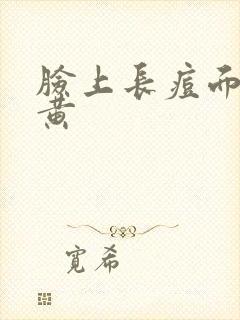 臉上長痘而
黃
寬希